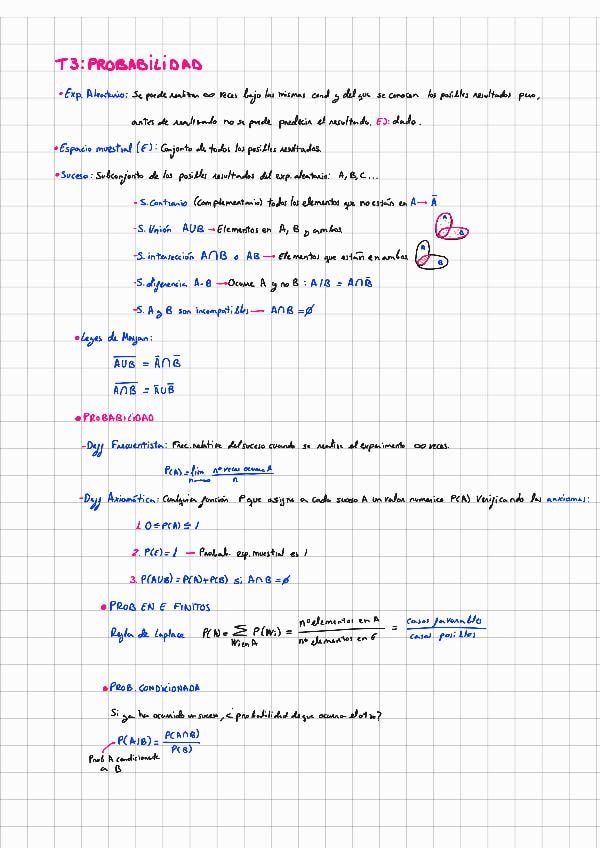 T3: PROBABILIDAD
• Exp. Aleatorio: Se puede realizar ∞ veces bajo las mismas cond y del que se conocen los posibles resultados pero,
antes de realizarlo no se puede predecir el resultado. EJ: dado.
• Espacio muestral (E): Conjunto de todos los posibles resultados.
• Suceso: Subconjunto de los posibles resultados del exp. aleatorio: A, B, C...
- S. Contrario (complementario) todos los elementos que no están en A → Ā
- S. Unión A∪B → Elementos en A, B y ambos
A
B
- S. intersección A∩B o AB → Elementos que están en ambos
A
B
- S. diferencia A-B → Ocurre A y no B : A/B = A∩B̄
- S. A y B son incompatibles — A∩B = ∅
• Leyes de Morgan:
\overline{A∪B} = Ā∩B̄
\overline{A∩B} = Ā∪B̄
• PROBABILIDAD
- Deff Frecuentista: Frec. relativa del suceso cuando se realiza el experimento ∞ veces.
P(A) = lim n→∞ nº veces ocurre A / n
- Deff Axiomática: Cualquier función P que asigna a cada suceso A un valor numerico P(A) verificando los axiomas:
1. 0 ≤ P(A) ≤ 1
2. P(E) = 1 — Probab. esp. muestral es 1
3. P(A∪B) = P(A) + P(B) si A∩B = ∅
• PROB EN E FINITOS
Regla de Laplace P(A) = ∑ Wi en A P(Wi) = nº elementos en A / nº elementos en E = casos favorables / casos posibles
• PROB. CONDICIONADA
Si ya ha ocurrido un suceso, ¿probabilidad de que ocurra el otro?
P(A/B) = P(A∩B) / P(B)
Prob A condicionada
a B